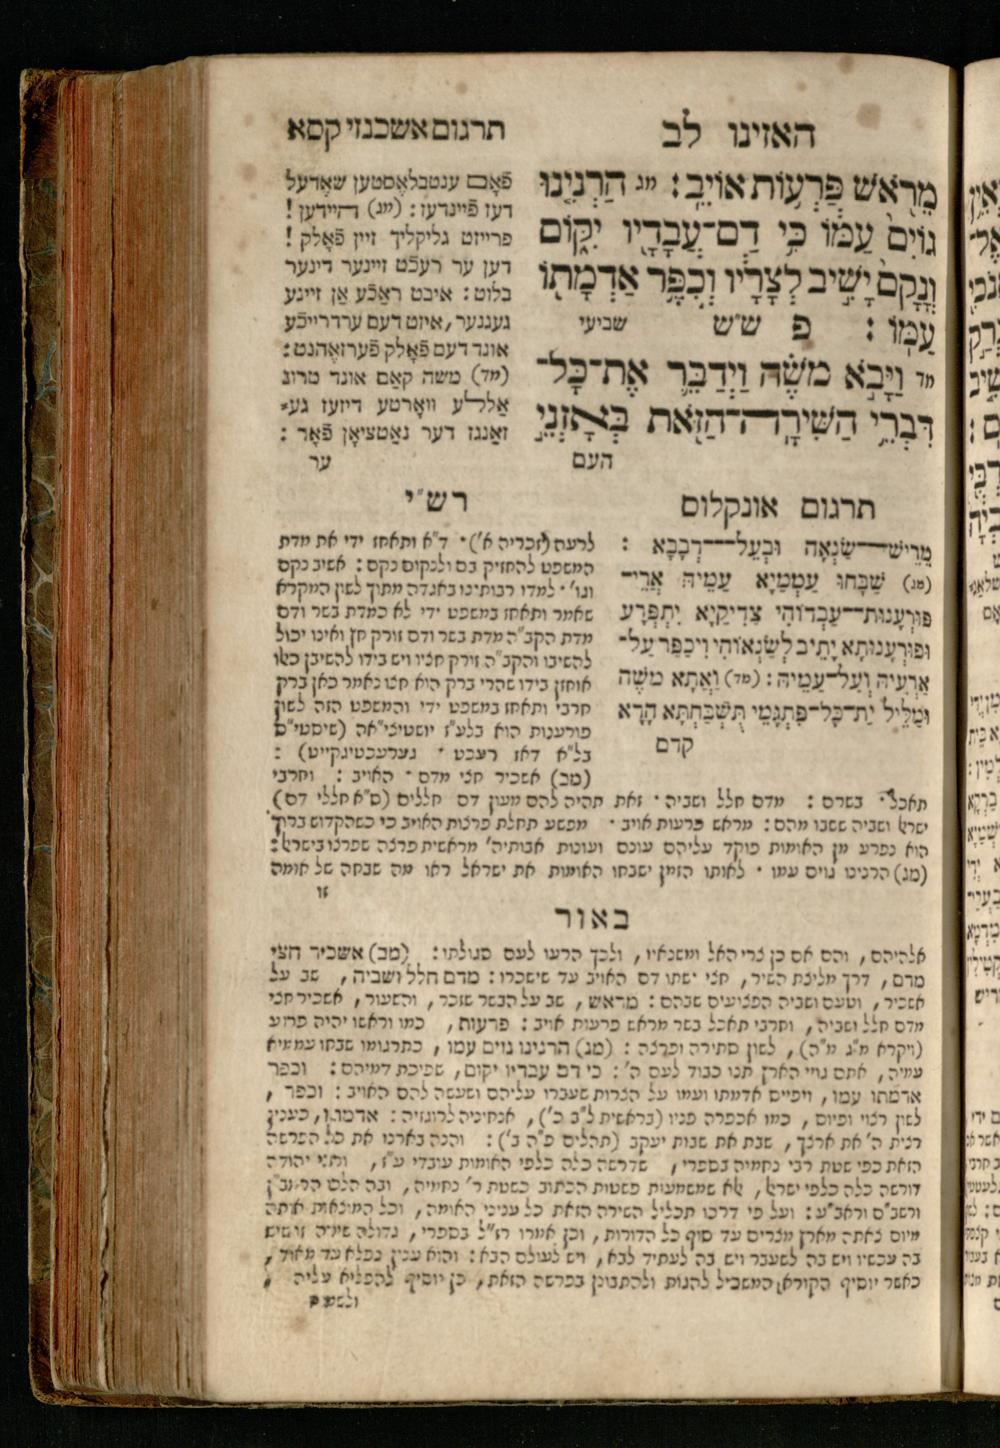 האזינו לב
תרגום אשכנזי קסא
מֵרֹאשׁ פַּרְעוֹת אוֹיֵב׃ מג הַרְנִינוּ
גוֹיִם עַמּוֹ כִּי דַם־עֲבָדָיו יִקּוֹם
וְנָקָם יָשִׁיב לְצָרָיו וְכִפֶּר אַדְמָתוֹ
עַמּוֹ׃ פ ש״ש שביעי
מד וַיָּבֹא מֹשֶׁה וַיְדַבֵּר אֶת־כָּל־
דִּבְרֵי הַשִּׁירָה־הַזֹּאת בְּאָזְנֵי
העם
פֿאָם ענטבלאֶסטען שאֶדעל
דעז פֿיינדעז: (מג) היידען!
פרייזט גליקליך זיין פֿאָלק!
דען ער רעכֿט זיינער דינער
בלוט: איבט ראַכֿע אַן זיינע
געגנער, איזט דעם ערדרייכֿע
אונד דעם פֿאָלק פֿערזאֶהנט:
(מד) משה קאַם אונד טרוג
אַללע וואָרטע דיזעז גע־
זאַנגז דער נאַטציאָן פֿאָר:
ער
תרגום אונקלוס
מֵרֵישׁ שַׂנְאָה וּבְעֵל דְּבָבָא:
(מג) שַׁבָּחוּ עַמְמַיָּא עַמֵּיהּ אֲרֵי־
פּוּרְעָנוּת־עַבְדוֹהִי צַדִּיקַיָּא יִתְפְּרָע
וּפוּרְעָנוּתָא יָתֵיב לְשָׂנְאוֹהִי וִיכַפֵּר עַל־
אַרְעֵיהּ וְעַל־עַמֵּיהּ: (מד) וַאֲתָא מֹשֶׁה
וּמַלֵּיל יַת־כָּל־פִּתְגָּמֵי תֻּשְׁבַּחְתָּא הָדָא
קדם
רש״י
לרעה (זכריה א׳)· ד״א ותאחז ידי את מדת
המשפט להחזיק בם ולנקום נקם: אשיב נקם
וגו׳· למדו רבותינו באגדה מתוך לשון המקרא
שאמר ותאחז במשפט ידי לא כמדת בשר ודם
מדת הקב״ה מדת בשר ודם זורק חץ ואינו יכול
להשיבו והקב״ה זורק חציו ויש בידו להשיבן כאלו
אוחזן בידו שהרי ברק הוא חצו נאמר כאן ברק
חרבי ותאחז במשפט ידי והמשפט הזה לשון
פורענות הוא בלע״ז יושטיצי״אה (שיסטי״ם
בל״א דאז רעכט · גערעכטיגקייט):
(מב) אשכיר חצי מדם · האויב: וחרבי
תאכל· בשרם: מדם חלל ושביה· זאת תהיה להם מעון דם חללים (ס״א חללי דם)
ישראל ושביה ששבו מהם: מראש פרעות אויב· מפשע תחלת פרצות האויב כי כשהקדוש ברוך
הוא נפרע מן האומות פוקד עליהם עונם ועונות אבותיה׳ מראשית פרצה שפרצו בישראל:
(מג) הרנינו גוים עמו· לאותו הזמן ישבחו האומות את ישראל ראו מה שבחה של אומה
זו
באור
אלהיהם, והם אם כן צרי האל ומשנאיו, ולכך הרעו לעם סגולתו: (מב) אשכיר חצי
מדם, דרך מליצת השיר, חצי ישתו דם האויב עד שישכרו: מדם חלל ושביה, שב על
אשכיר, וטעם ושביה הפצועים שבהם: מראש, שב על הבשר שזכר, והשעור, אשכיר חצי
מדם חלל ושביה, וחרבי תאכל בשר מראש פרעות אויב: פרעות, כמו וראשו יהיה פרוע
(ויקרא מ״ג מ״ה), לשון סתירה ופרצה: (מג) הרנינו גוים עמו, כתרגומו שבחו עממיא
עמיה, אתם גויי הארץ תנו כבוד לעם ה׳: כי דם עבדיו יקום, שפיכת דמיהם: וכפר
אדמתו עמו, ויפייס אדמתו ועמו על הצרות שעברו עליהם ושעשה להם האויב: וכפר,
לשון רצוי ופיוס, כמו אכפרה פניו (בראשית ל״ב כ׳), אנחיניה לרוגזיה: אדמתו, כענין
רצית ה׳ את ארצך, שבת את שבות יעקב (תהלים פ״ה ב׳): והנה בארנו את כל הפרשה
הזאת כפי שטת רבי נחמיה בספרי, שדרשה כלה כלפי האומות עובדי ע״ז, ורבי יהודה
דורשה כלה כלפי ישראל, לא שמשמעות פשטות הכתוב כשטת ר׳ נחמיה, ובה הלכו הרמב״ן
ורשב״ם וראב״ע: ועל פי דרכו תכליל השירה הזאת כל עניני האומה, וכל המוצאות אותה
מיום צאתה מארץ מצרים עד סוף כל הדורות, וכן אמרו רז״ל בספרי, גדולה שירה זו שיש
בה עכשיו ויש בה לשעבר ויש בה לעתיד לבא, ויש לעולם הבא: והוא ענין נפלא עד מאוד,
כאשר יוסיף הקורא המשכיל להגות ולהתבונן בפרשה הזאת, כן יוסיף להפליא עליה,